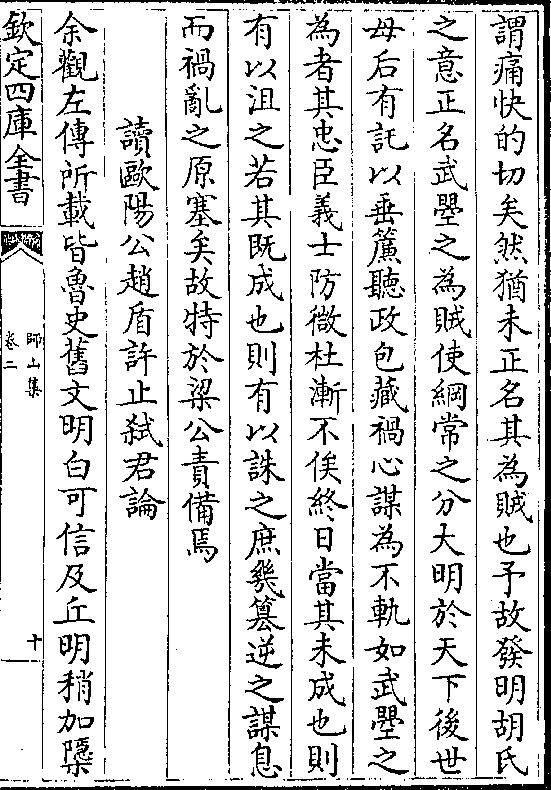 謂痛快的切矣然猶未正名其為賊也予故發明胡氏
之意正名武曌之為賊使綱常之分大明於天下後世
母后有託以垂簾聽政包藏禍心謀為不軌如武曌之
為者其忠臣義士防微杜漸不俟終日當其未成也則
有以沮之若其既成也則有以誅之庶幾篡逆之謀息
而禍亂之原塞矣故特於梁公責備焉
讀歐陽公趙盾許止弑君論
余觀左傳所載皆魯史舊文明白可信及丘明稍加隱栝
欽定四庫全書
師山集
卷二
十